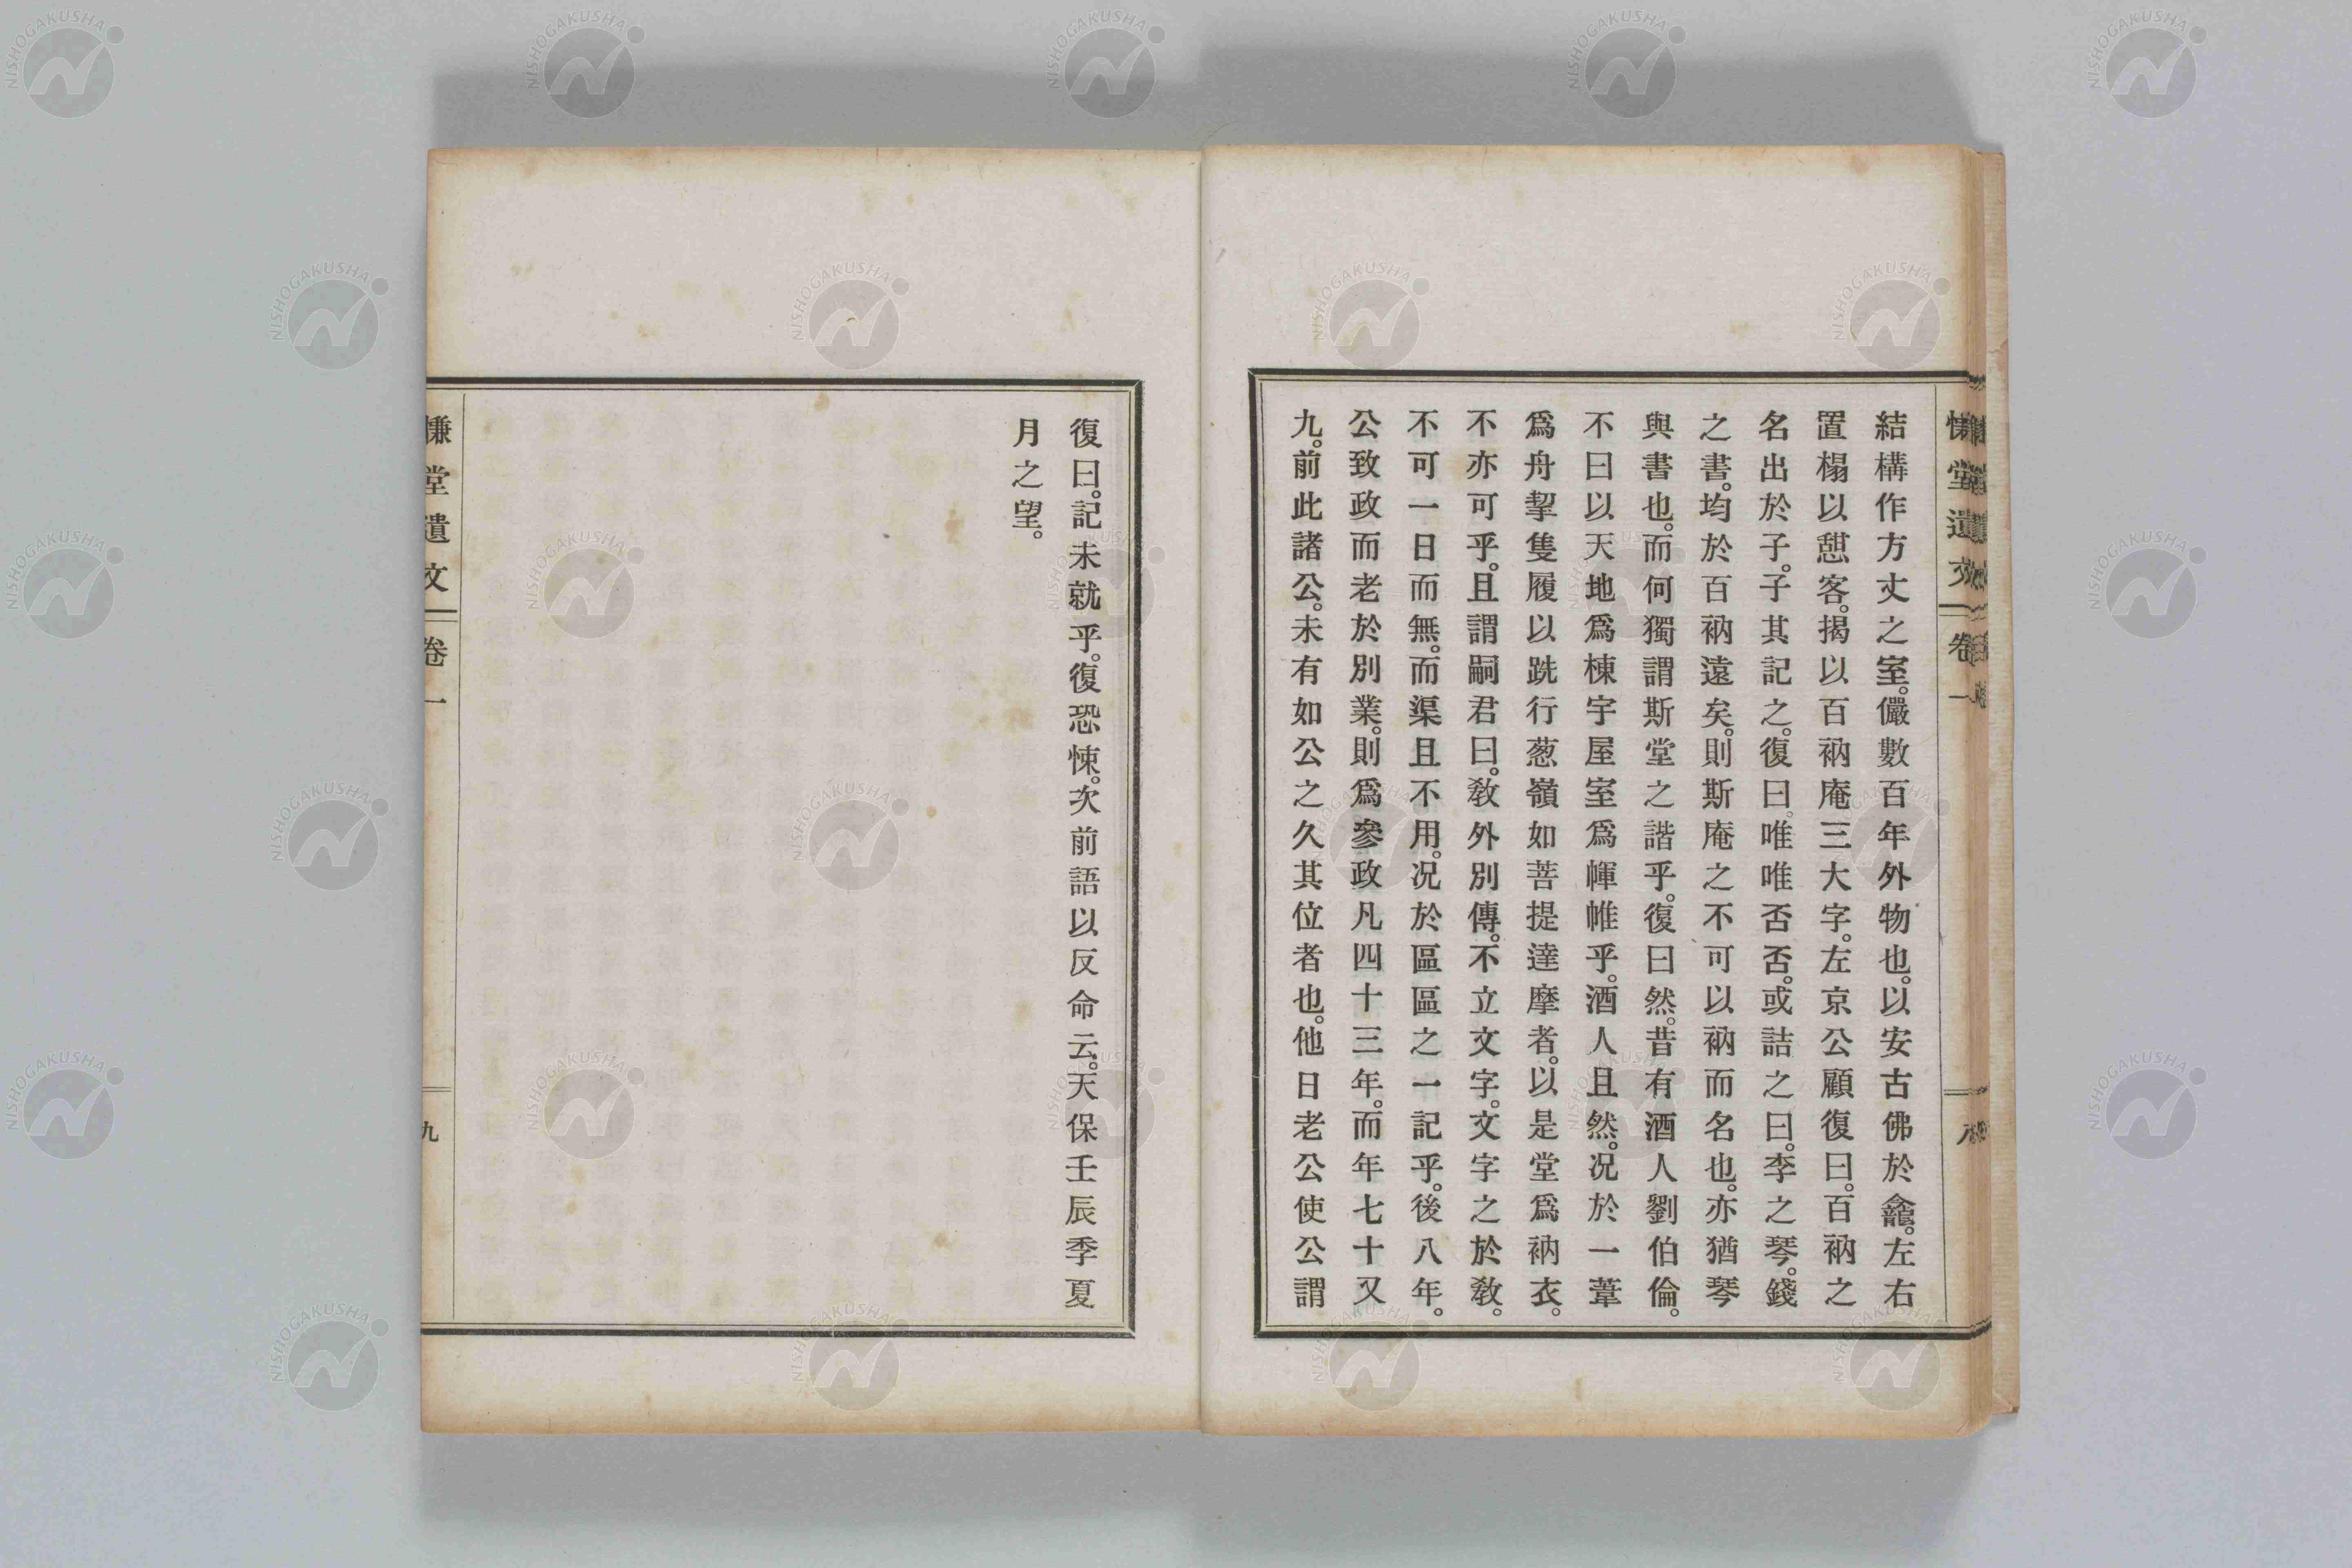 結構作方丈之室。儼數百年外物也。以安古佛於龕。左右
置榻以憩客。揭以百衲庵三大字。左京公顧復曰。百衲之
名出於子。子其記之。復曰。唯唯否否。或詰之曰。李之琴。錢
之書。均於百衲遠矣。則斯庵之不可以衲而名也。亦猶琴
與書也。而何獨謂斯堂之諧乎。復曰然。昔有酒人劉伯倫。
不曰以天地爲棟宇屋室爲幝帷乎。酒人且然。况於一葦
爲舟挈隻履以跣行葱嶺如菩提達摩者。以是堂爲衲衣。
不亦可乎。且謂嗣君曰。敎外別傳。不立文字。文字之於敎。
不可一日而無。而渠且不用。况於區區之一記乎。後八年。
公致政而老於別業。則爲參政凡四十三年。而年七十又
九。前此諸公。未有如公之久其位者也。他日老公使公謂
慊堂遺文 卷一 八
復曰。記未就乎。復恐悚。次前語以反命云。天保壬辰季夏
月之望。
慊堂遺文 卷一 九
NISHOGAKUSHA